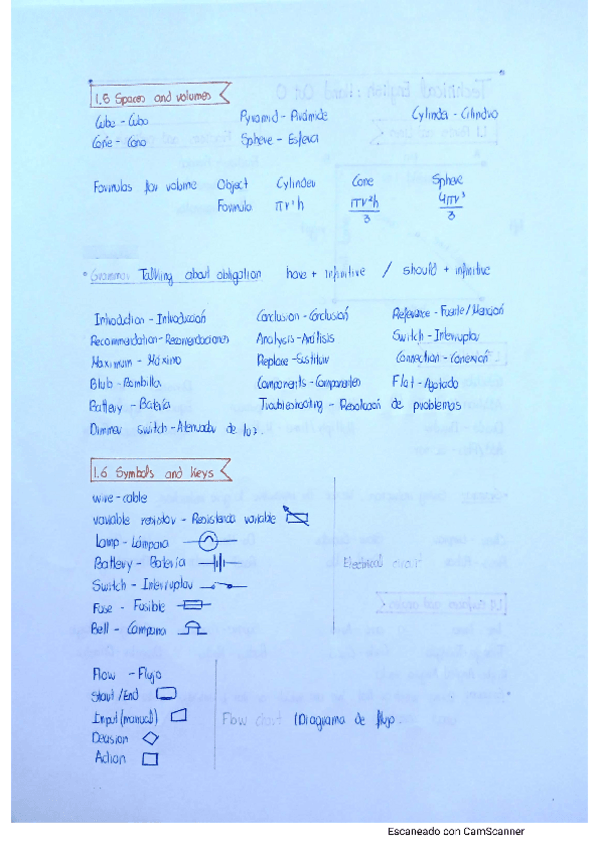 1.5 Spaces and volumes
Cube - Cubo Pyramid - Pirámide Cylinder - Cilindro
Cone - Cono Sphere - Esfera
Formulas for volume Object Cylinder Cone Sphere
Formula πr²h πr²h/3 4πr³/3
• Grammar Talking about obligation have + infinitive / should + infinitive
Introduction - Introducción Conclusion - Conclusión Reference - Fuente / Mención
Recommendation - Recomendaciones Analysis - Análisis Switch - Interruptor
Maximum - Máximo Replace - Sustituir Connection - Conexión
Blub - Bombilla Components - Componentes Flat - Agotado
Battery - Batería Troubleshooting - Resolución de problemas
Dimmer switch - Atenuador de luz.
1.6 Symbols and Keys
wire - cable
variable resistor - Resistencia variable
Lamp - Lámpara
Battery - Batería Electrical circuit
Switch - Interruptor
Fuse - Fusible
Bell - Campana
Flow - Flujo
Start / End
Input (manual) Flow chart (Diagrama de flujo
Decision
Action
Escaneado con CamScanner